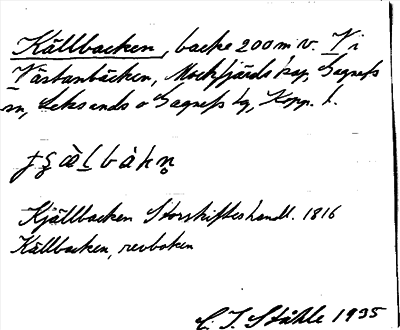 Källbacken, backe 200 m v. Vi
Västanbäcken, Mockfjärds kap, Gagnefs
sn, Leksands o Gagnefs tg, Kopp. l.
Kjällbacken Storskifteshandl. 1816
Källbacken, revboken
C. I. Ståhle 1935